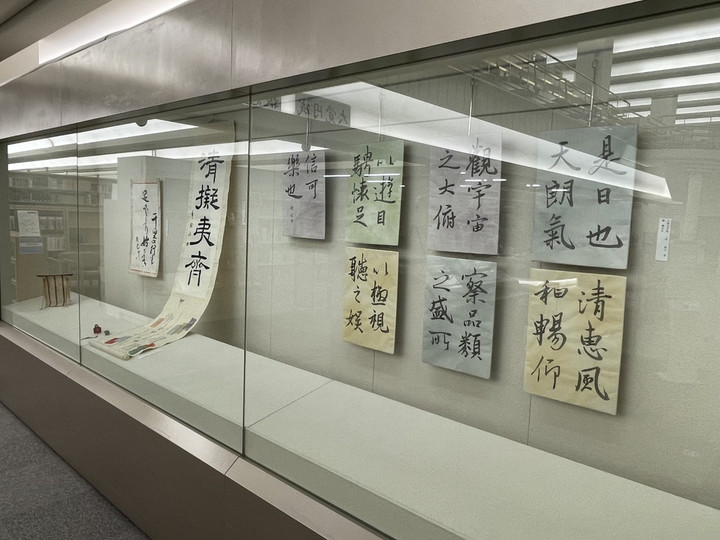 是日也
天朗氣
清恵風
和暢仰
觀宇宙
之大俯
察品類
之盛所
以遊目
騁懷足
以極視
聽之娛
信可
樂也
清擬夷齊